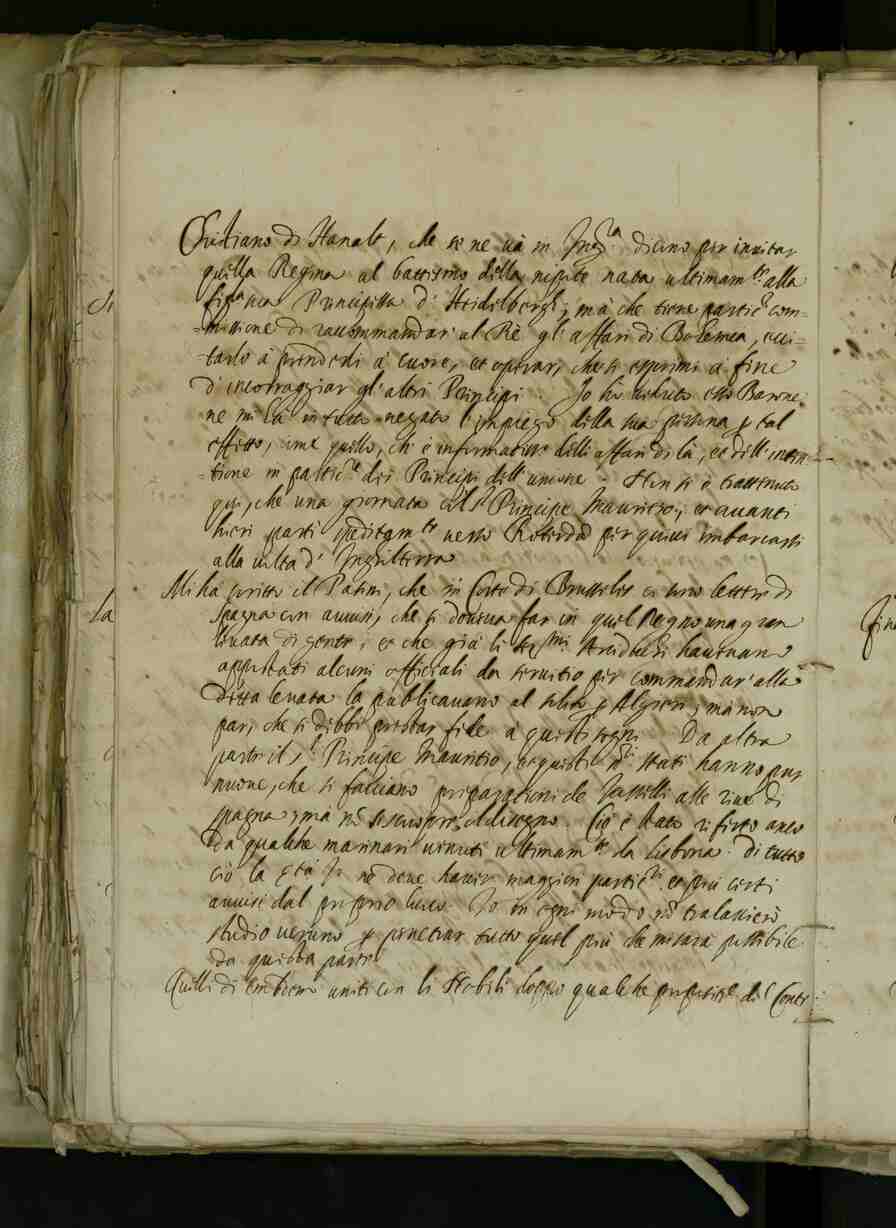 Christiano di Hanalt, che se ne và in Ingh.ra dicono per invitar
quella Regina al battesimo della nepote nata ultimam.te alla
fig.la sua Principessa d'Heidelbergh; mà che tiene partic.r com-
-missione di raccommandar' al Rè gl'affari di Bohemia, ecci-
-tarlo à prenderli à cuore, et operar, che si esprimi à fine
d'incorraggiar gl'altri Principi. Io hò veduto esso Barone,
ne mi hà in tutto negato l'impiego della sua persona p tal
effetto, come quello, ch'è informatiss.o delli affari di là, et dell'inten-
-tione in partic.re dei Principi dell'unione. Non si è trattenuto
qui, che una giornata col S.r Principe Mauritio; et avanti
hieri partì speditam.te verso Roterdã per quivi imbarcarsi
alla volta d'Inghilterra
Mi ha scritto il Patini, che in Corte di Brusseles vi sono lettere di
Spagna con avvisi, che si doveva far in quel Regno una gran
levata di gente; et che già li Ser.mi Arciduchi havevano
appostati alcuni officiali da servitio per commandar' alla
detta levata la publicavano al solito p Algieri; mà non
par, che si debbi prestar fede à questi sogni. Da altra
parte il S.r Principe Mauritio, et questi S.ri Stati hanno pur
nuove, che si facciano preparationi de Vasselli alle rive di
Spagna; mà nõ si scuopre il disegno. Ciò è stato riferto anco
da qualche marinari venuti ultimam.te da Lisbona. Di tutto
ciò la S.tà V.ra nõ deve haver maggiori partic.ri et più certi
avvisi dal proprio luoco. Io in ogni modo nõ tralascierò
studio veruno p penetrar tutto quel più che mi sarà possibile
da questa parte
Quelli di Embden uniti con li Nobili doppo qualche del Conte